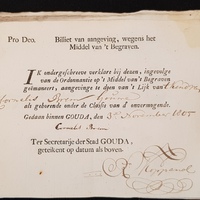 Pro Deo. Billiet van aangeving, wegens het
Middel van 't Begraven.
IK ondergeschreve verklare bij desen, ingevolge
van de Ordonnantie op 't Middel van 't Begraven
geëmaneert, aangeving te doen van 't Lijk van
Cornelis
als gehorende onder de Classis van d' onvermogende.
Gedaan binnen GOUDA, den 3e November 1805
Cornelis
Ter Secretarije der Stad GOUDA,
getekent op datum als boven.